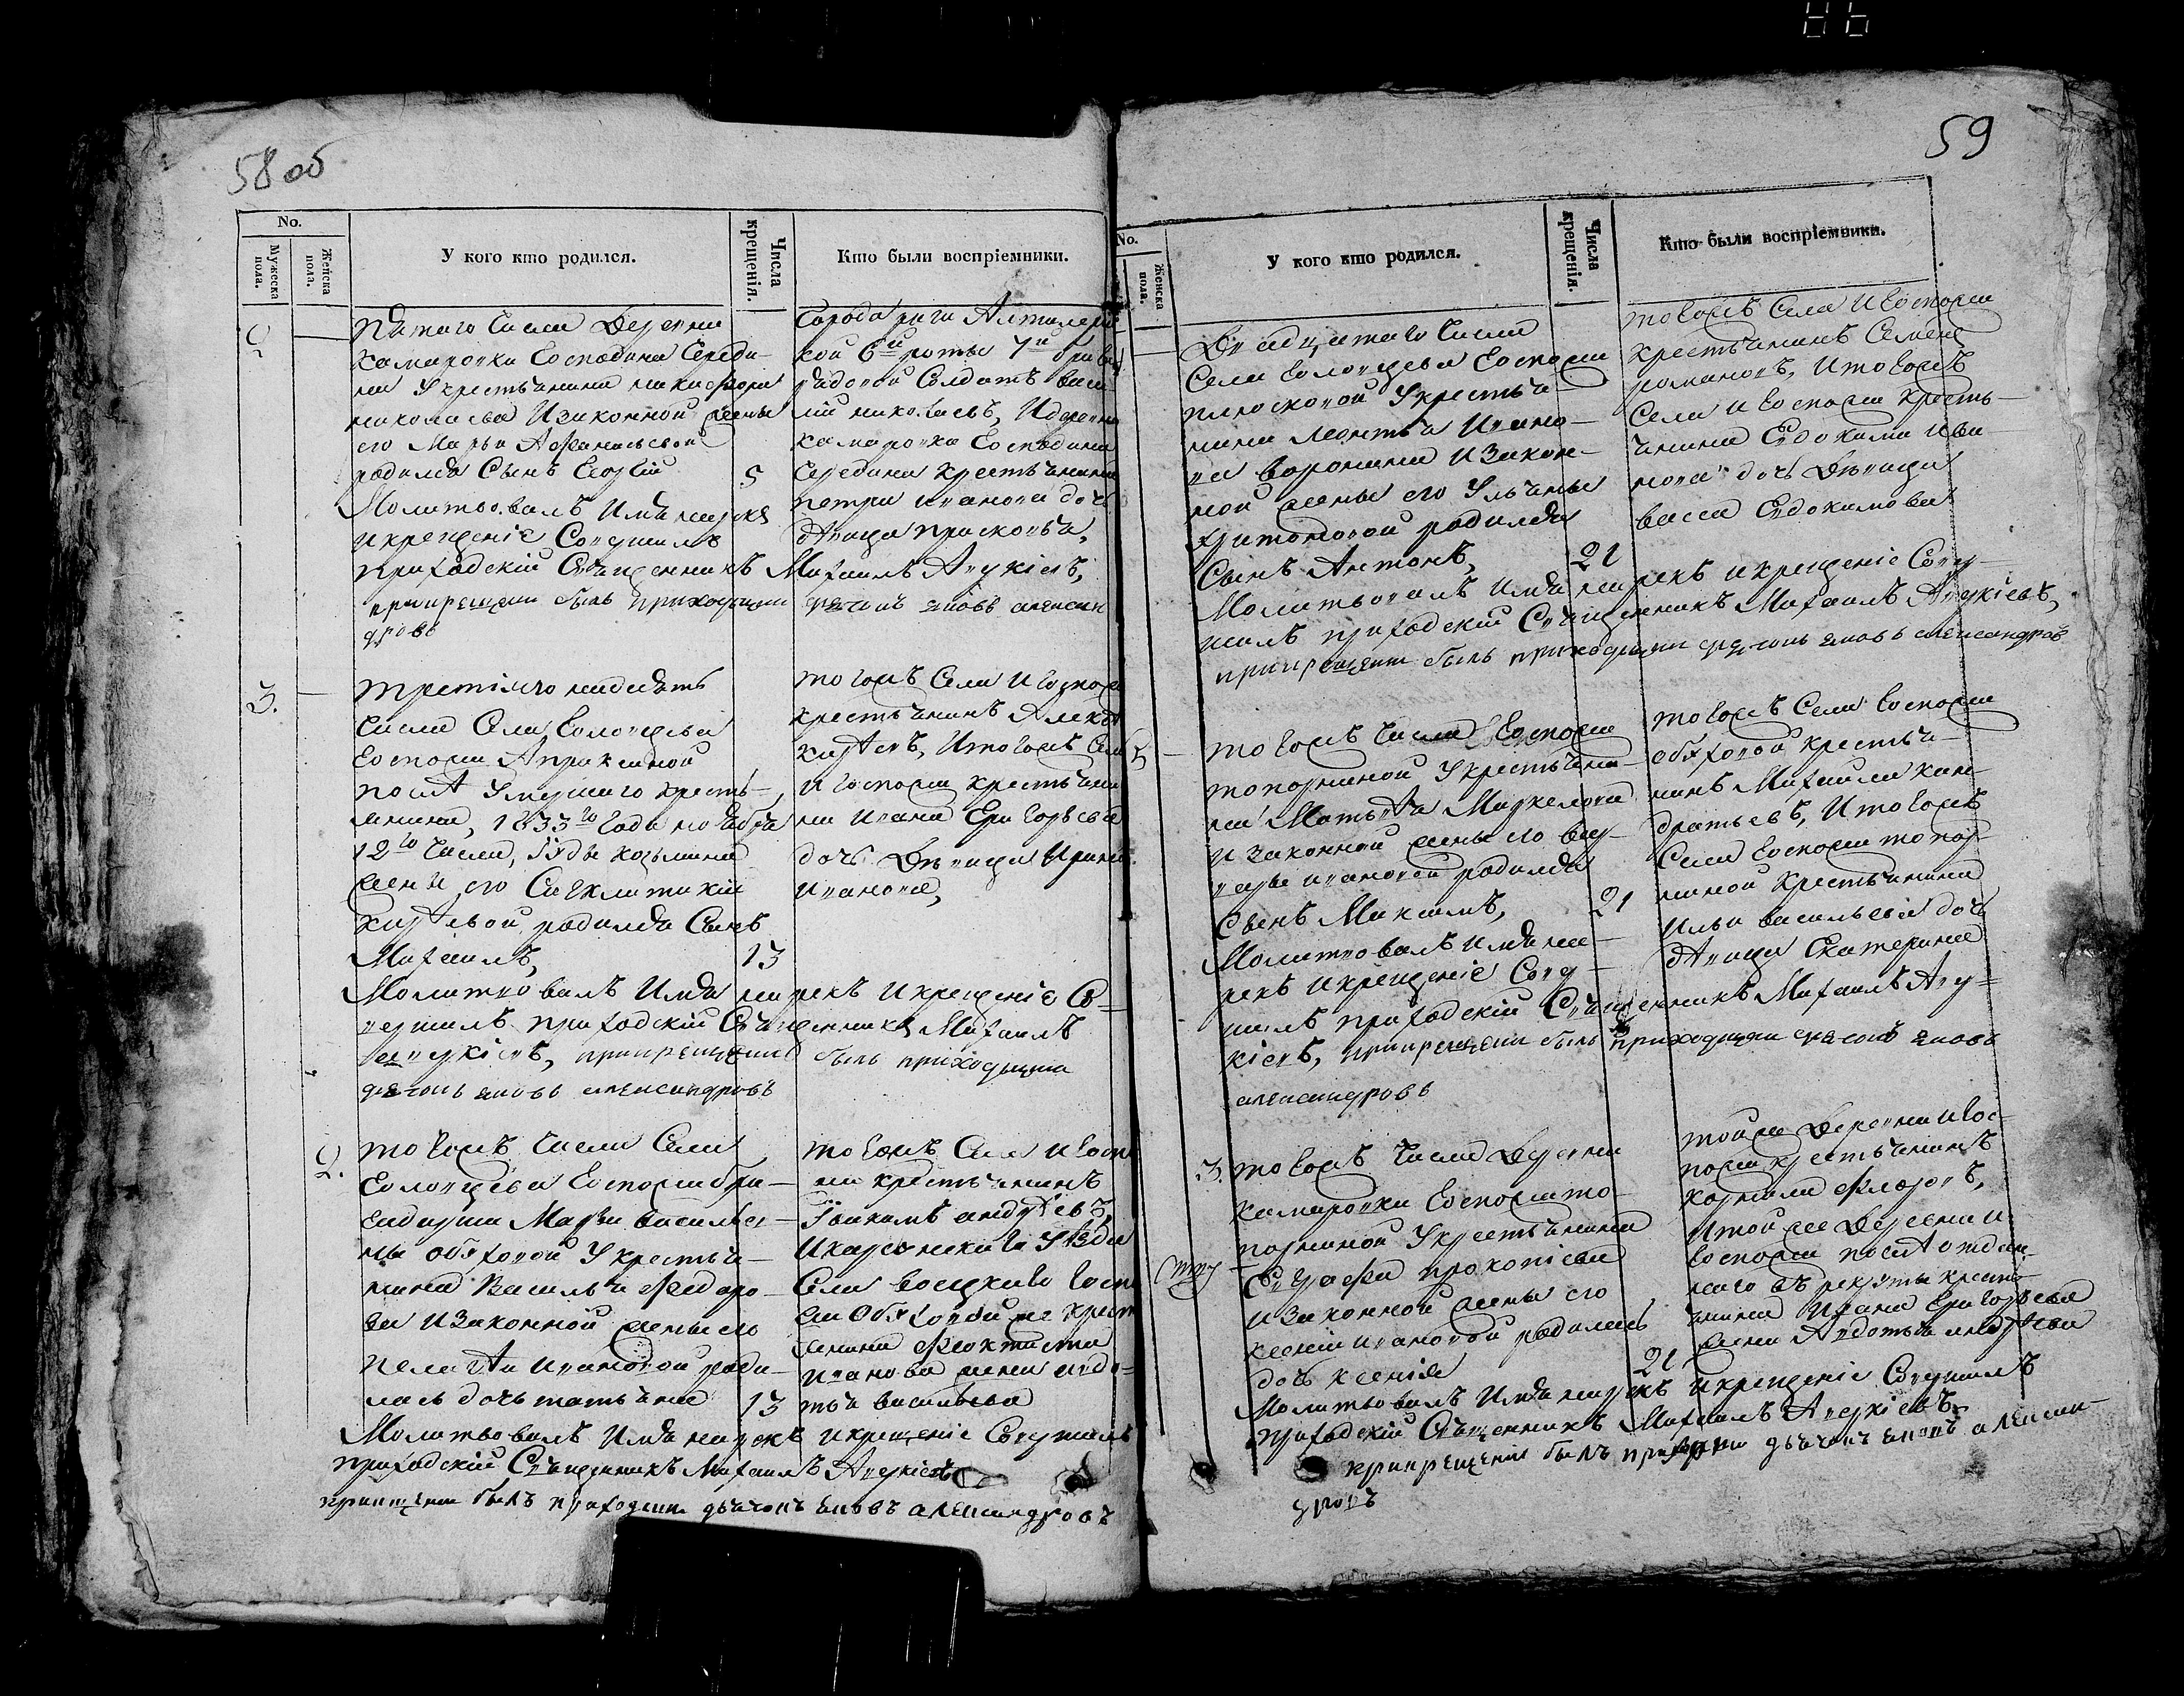 58 об
No.
Мужеска пола.
Женска пола.
У кого кто родился.
Числа крещенія.
Кто были воспріемники.
2
Пятаго Числа Деревни
Камаровки Господина Середи-
ны У крестьянина никифора
николаева И законной жены
его Марьи Афанасьевой
родился Сынъ Георгій
5
Молитвовалъ Имя нарекъ
и крещеніе Совершилъ
приходскій Священникъ Михаилъ Аверкіевъ,
при крещеніи былъ приходящи дьячокъ яковъ алексан
дровъ
Города риги Артилерій
кой 6й роты 7й бригад
рядовой Солдатъ васи-
лій николаевъ, И деревни
камаровки Господина
Середины крестьянина
петра иванова дочь
дѣвица прасковья,
3.
Третіяго надесять
Числа Села Головщева
Госпожи Апраксиной
послѣ Умершаго кресть-
янина, 1833го Года ноября
12го Числа,
жены его Сигклитикіи
родился Сынъ
Михаилъ,
13
Молитвовалъ Имя нарекъ И крещеніе Со-
вершилъ приходскій Священникъ Михаилъ
аверкіевъ, при крещеніи былъ приходящи
дьячокъ яковъ александровъ
тогожъ Села И Госпожи
крестьянинъ Алексѣй
И тогожъ Села
И Госпожи крестьяни
на ивана Григорьева
дочь Дѣвица Ирина
иванова,
2.
тогожъ Числа Села
Головщева Госпожи бри-
гадирши Марьи васильев-
ны Обуховой У крестья-
нина Василья Федоро-
ва И законной жены его
пелагеи ивановой роди-
лась дочь татьяна
13
Молитвовалъ Имя нарекъ и крещеніе Совершилъ
приходскій Священникъ Михаилъ Аверкіевъ
при крещеніи былъ приходящи дьячокъ яковъ александровъ
тогожъ Села и Госпо
жи крестьянинъ
андреевъ,
И Уѣзда
Села Госпо
жи Обуховой крест
янина Феоктиста
иванова жена авдо-
тья васильева
59
No.
Женска пола.
У кого кто родился.
Числа крещенія.
Кто были воспріемники.
Двадцатаго Числа
Села Головщева Госпожи
Плюсковой У крестья-
нина леонтья Ивано-
ва воронина И закон-
ной жены его Ульяны
Харитоновой родился
Сынъ Антонъ,
21
Молитвовалъ Имя нарекъ и крещеніе Совер-
шилъ приходскій Священникъ Михаилъ Аверкіевъ,
при крещеніи былъ приходящи дьячокъ яковъ александровъ
тогожъ Села И Госпожи
крестьянинъ Семенъ
романовъ, И тогожъ
Села и Госпожи кресть-
янина Евдокима ива-
нова дочь Дѣвица
васса Евдокимова
5
тогожъ Числа Госпожи
топорниной У крестьяни-
на Матвея Маркелова
И законной жены его вар-
вары ивановой родился
Сынъ Максимъ,
21
Молитвовалъ Имя на-
рекъ и крещеніе Совер-
шилъ приходскій Священникъ Михаилъ Авер-
кіевъ, при крещеніи былъ приходящи дьячокъ яковъ
александровъ
тогожъ Села Госпожи
обуховой крестья-
нинъ Михаила кон-
дратьевъ, И тогожъ
Села Госпожи топор-
ниной крестьянина
Ильи васильева дочь
дѣвица Екатерина
3.
тогожъ Числа Деревни
Камаровки Госпожи то-
порниной У крестьянина
прокопіева
И законной жены его
ксеніи ивановой родилась
дочь ксенія
21
Молитвовалъ Имя нарекъ и крещеніе Совершилъ
приходскій Священникъ Михаилъ Аверкіевъ
при крещеніи былъ приходящи дьячокъ яковъ алексан-
дровъ
тойже Деревни и Гос-
пожи крестьянинъ
Флоровъ,
И тойже Деревни и
Госпожи послѣ отдан-
наго въ рекруты кресть-
янина Ивана Григорьева
жена Авдотья андреева